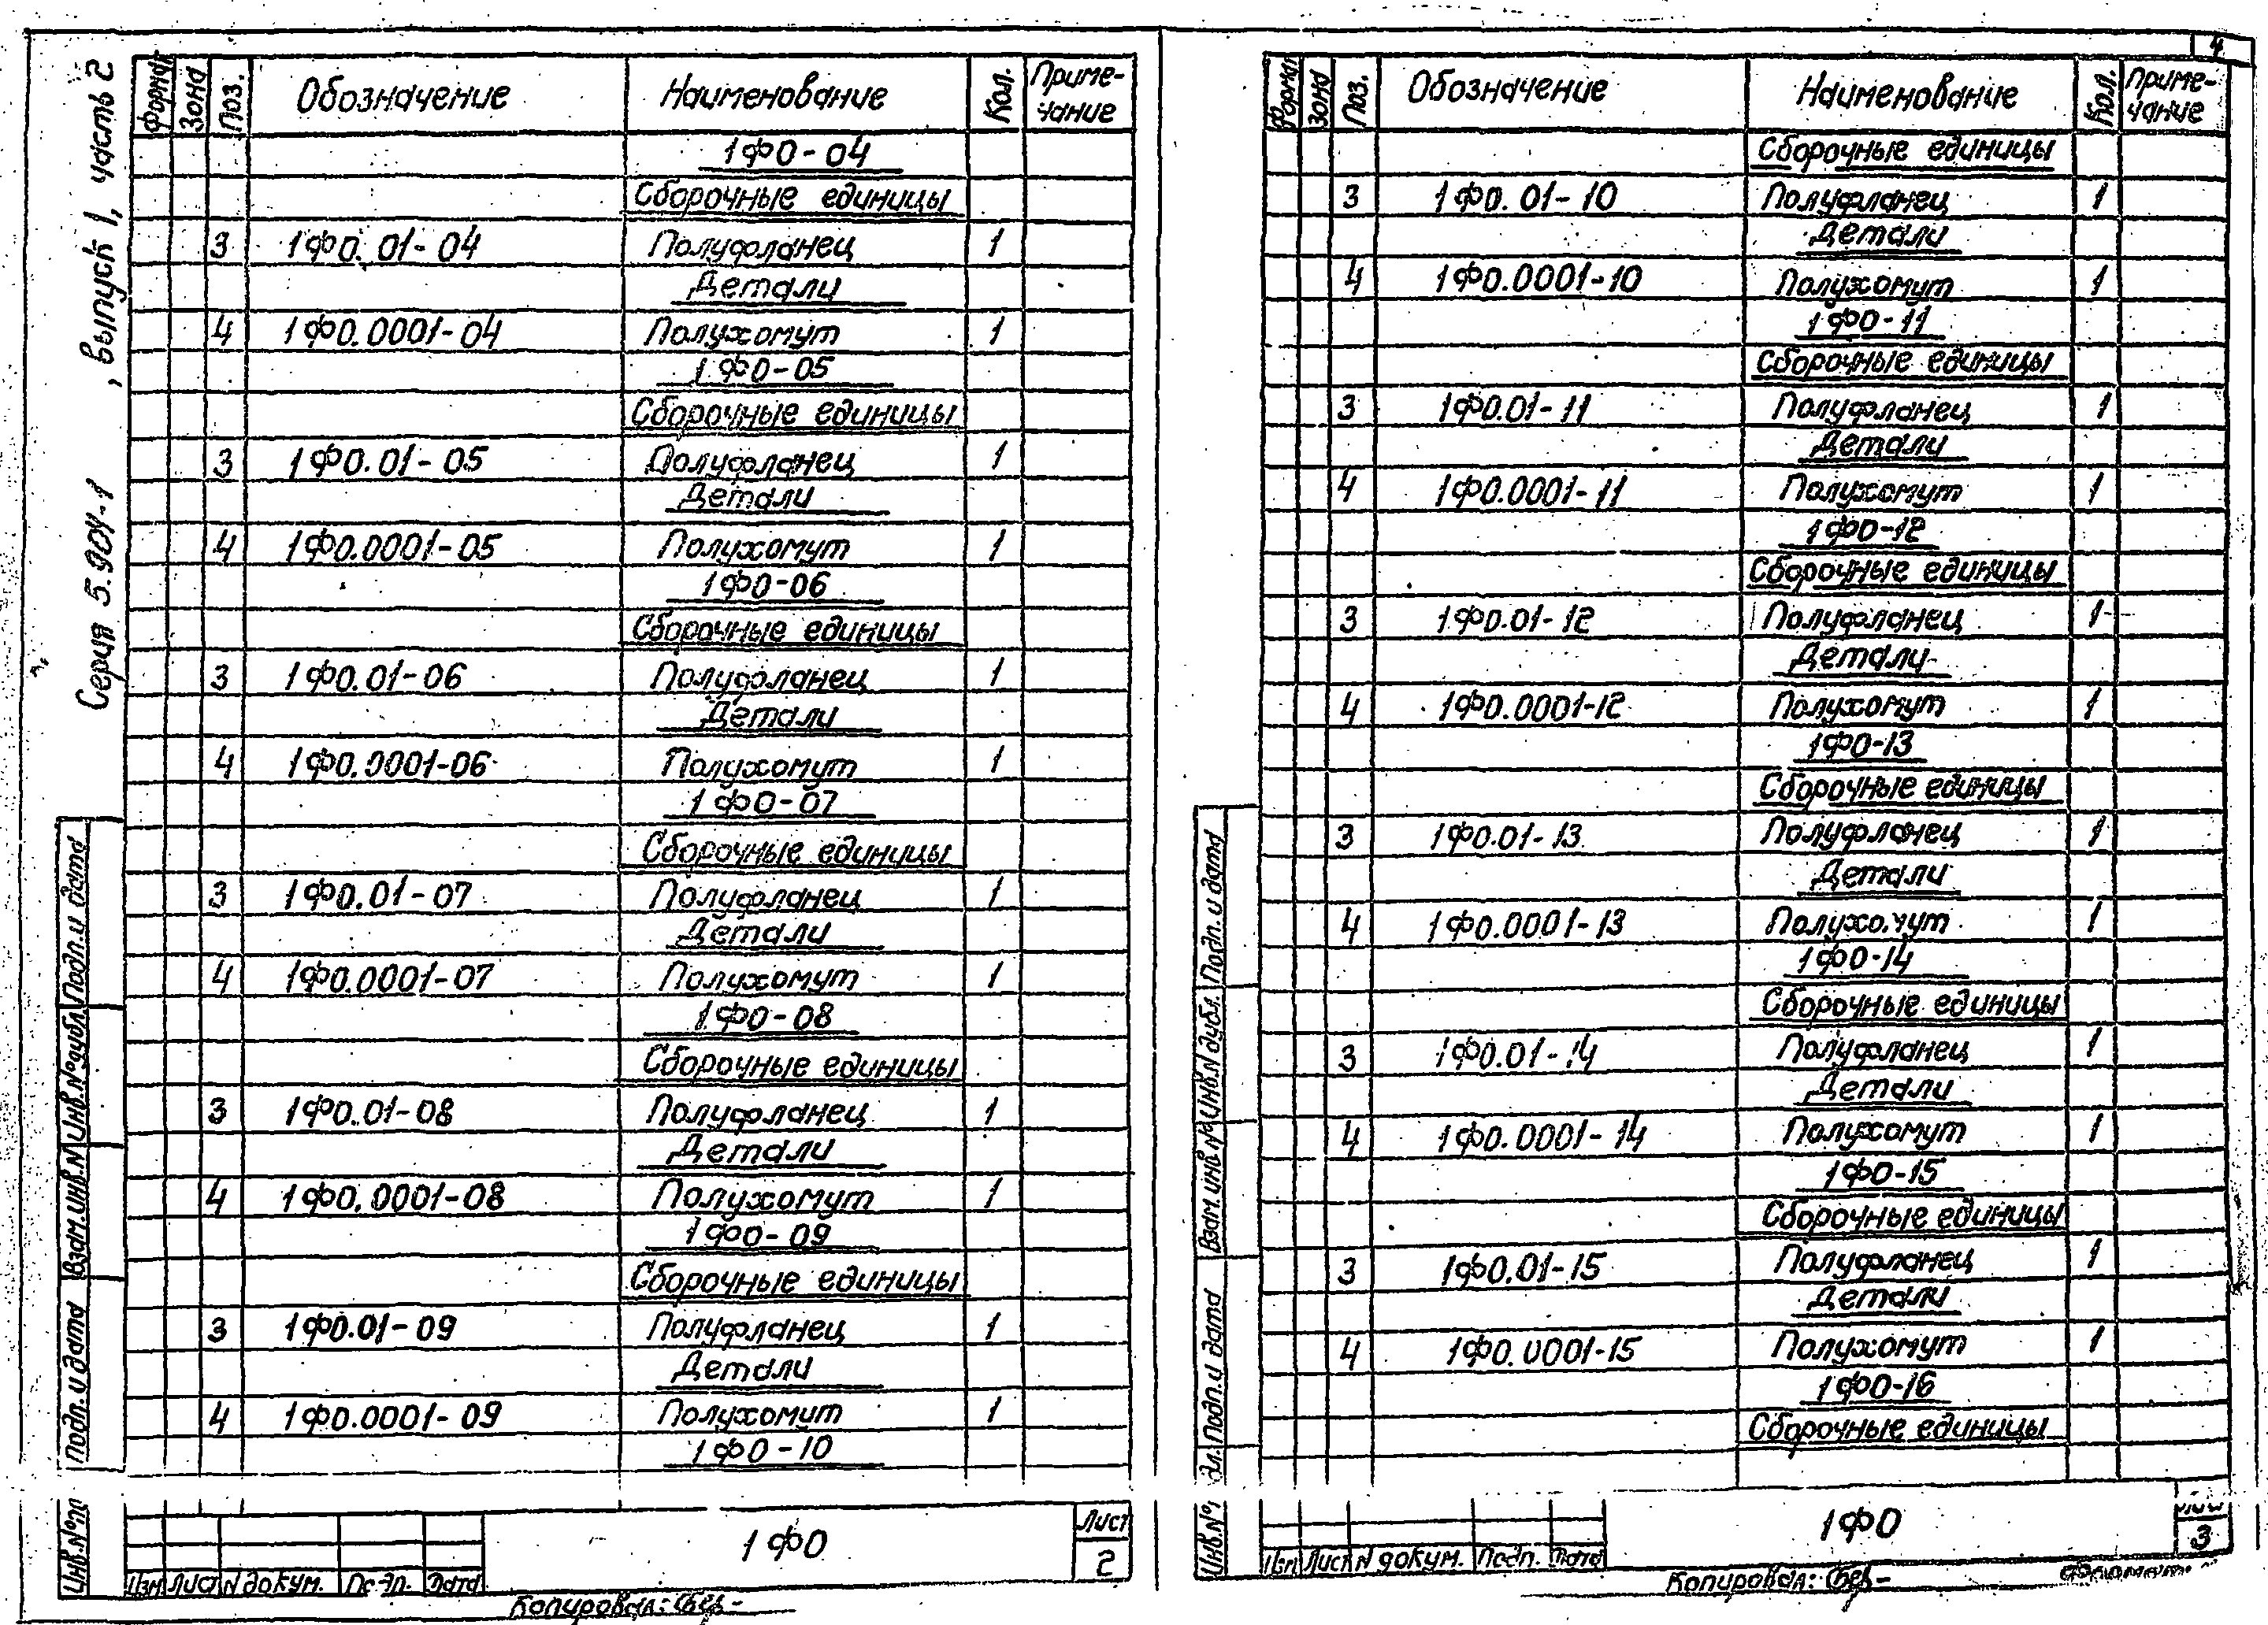 4
Серия 5.904-1 , выпуск 1, часть 2
Формат Зона Поз. Обозначение Наименование Кол. Примечание
1ФО-04
Сборочные единицы
3 1ФО.01-04 Полуфланец 1
Детали
4 1ФО.0001-04 Полухомут 1
1ФО-05
Сборочные единицы
3 1ФО.01-05 Полуфланец 1
Детали
4 1ФО.0001-05 Полухомут 1
1ФО-06
Сборочные единицы
3 1ФО.01-06 Полуфланец 1
Детали
4 1ФО.0001-06 Полухомут 1
1ФО-07
Сборочные единицы
3 1ФО.01-07 Полуфланец 1
Детали
4 1ФО.0001-07 Полухомут 1
1ФО-08
Сборочные единицы
3 1ФО.01-08 Полуфланец 1
Детали
4 1ФО.0001-08 Полухомут 1
1ФО-09
Сборочные единицы
3 1ФО.01-09 Полуфланец 1
Детали
4 1ФО.0001-09 Полухомут 1
1ФО-10
Подп. и дата
Инв.№дубл.
Взам.инв.N
Подп. и дата
Инв.№п
Изм Лист N докум. Подп. Дата
1ФО
Лист
2
Копировал:
Форма Зона Поз. Обозначение Наименование Кол. Примечание
Сборочные единицы
3 1ФО.01-10 Полуфланец 1
Детали
4 1ФО.0001-10 Полухомут 1
1ФО-11
Сборочные единицы
3 1ФО.01-11 Полуфланец 1
Детали
4 1ФО.0001-11 Полухомут 1
1ФО-12
Сборочные единицы
3 1ФО.01-12 Полуфланец 1
Детали
4 1ФО.0001-12 Полухомут 1
1ФО-13
Сборочные единицы
3 1ФО.01-13 Полуфланец 1
Детали
4 1ФО.0001-13 Полухомут 1
1ФО-14
Сборочные единицы
3 1ФО.01-14 Полуфланец 1
Детали
4 1ФО.0001-14 Полухомут 1
1ФО-15
Сборочные единицы
3 1ФО.01-15 Полуфланец 1
Детали
4 1ФО.0001-15 Полухомут 1
1ФО-16
Сборочные единицы
Подп. и дата
Инв.N дубл.
Взам.инв.№
Подп. и дата
Инв.№
Изм Лист N докум. Подп. Дата
1ФО
Лист
3
Копировал:
Формат